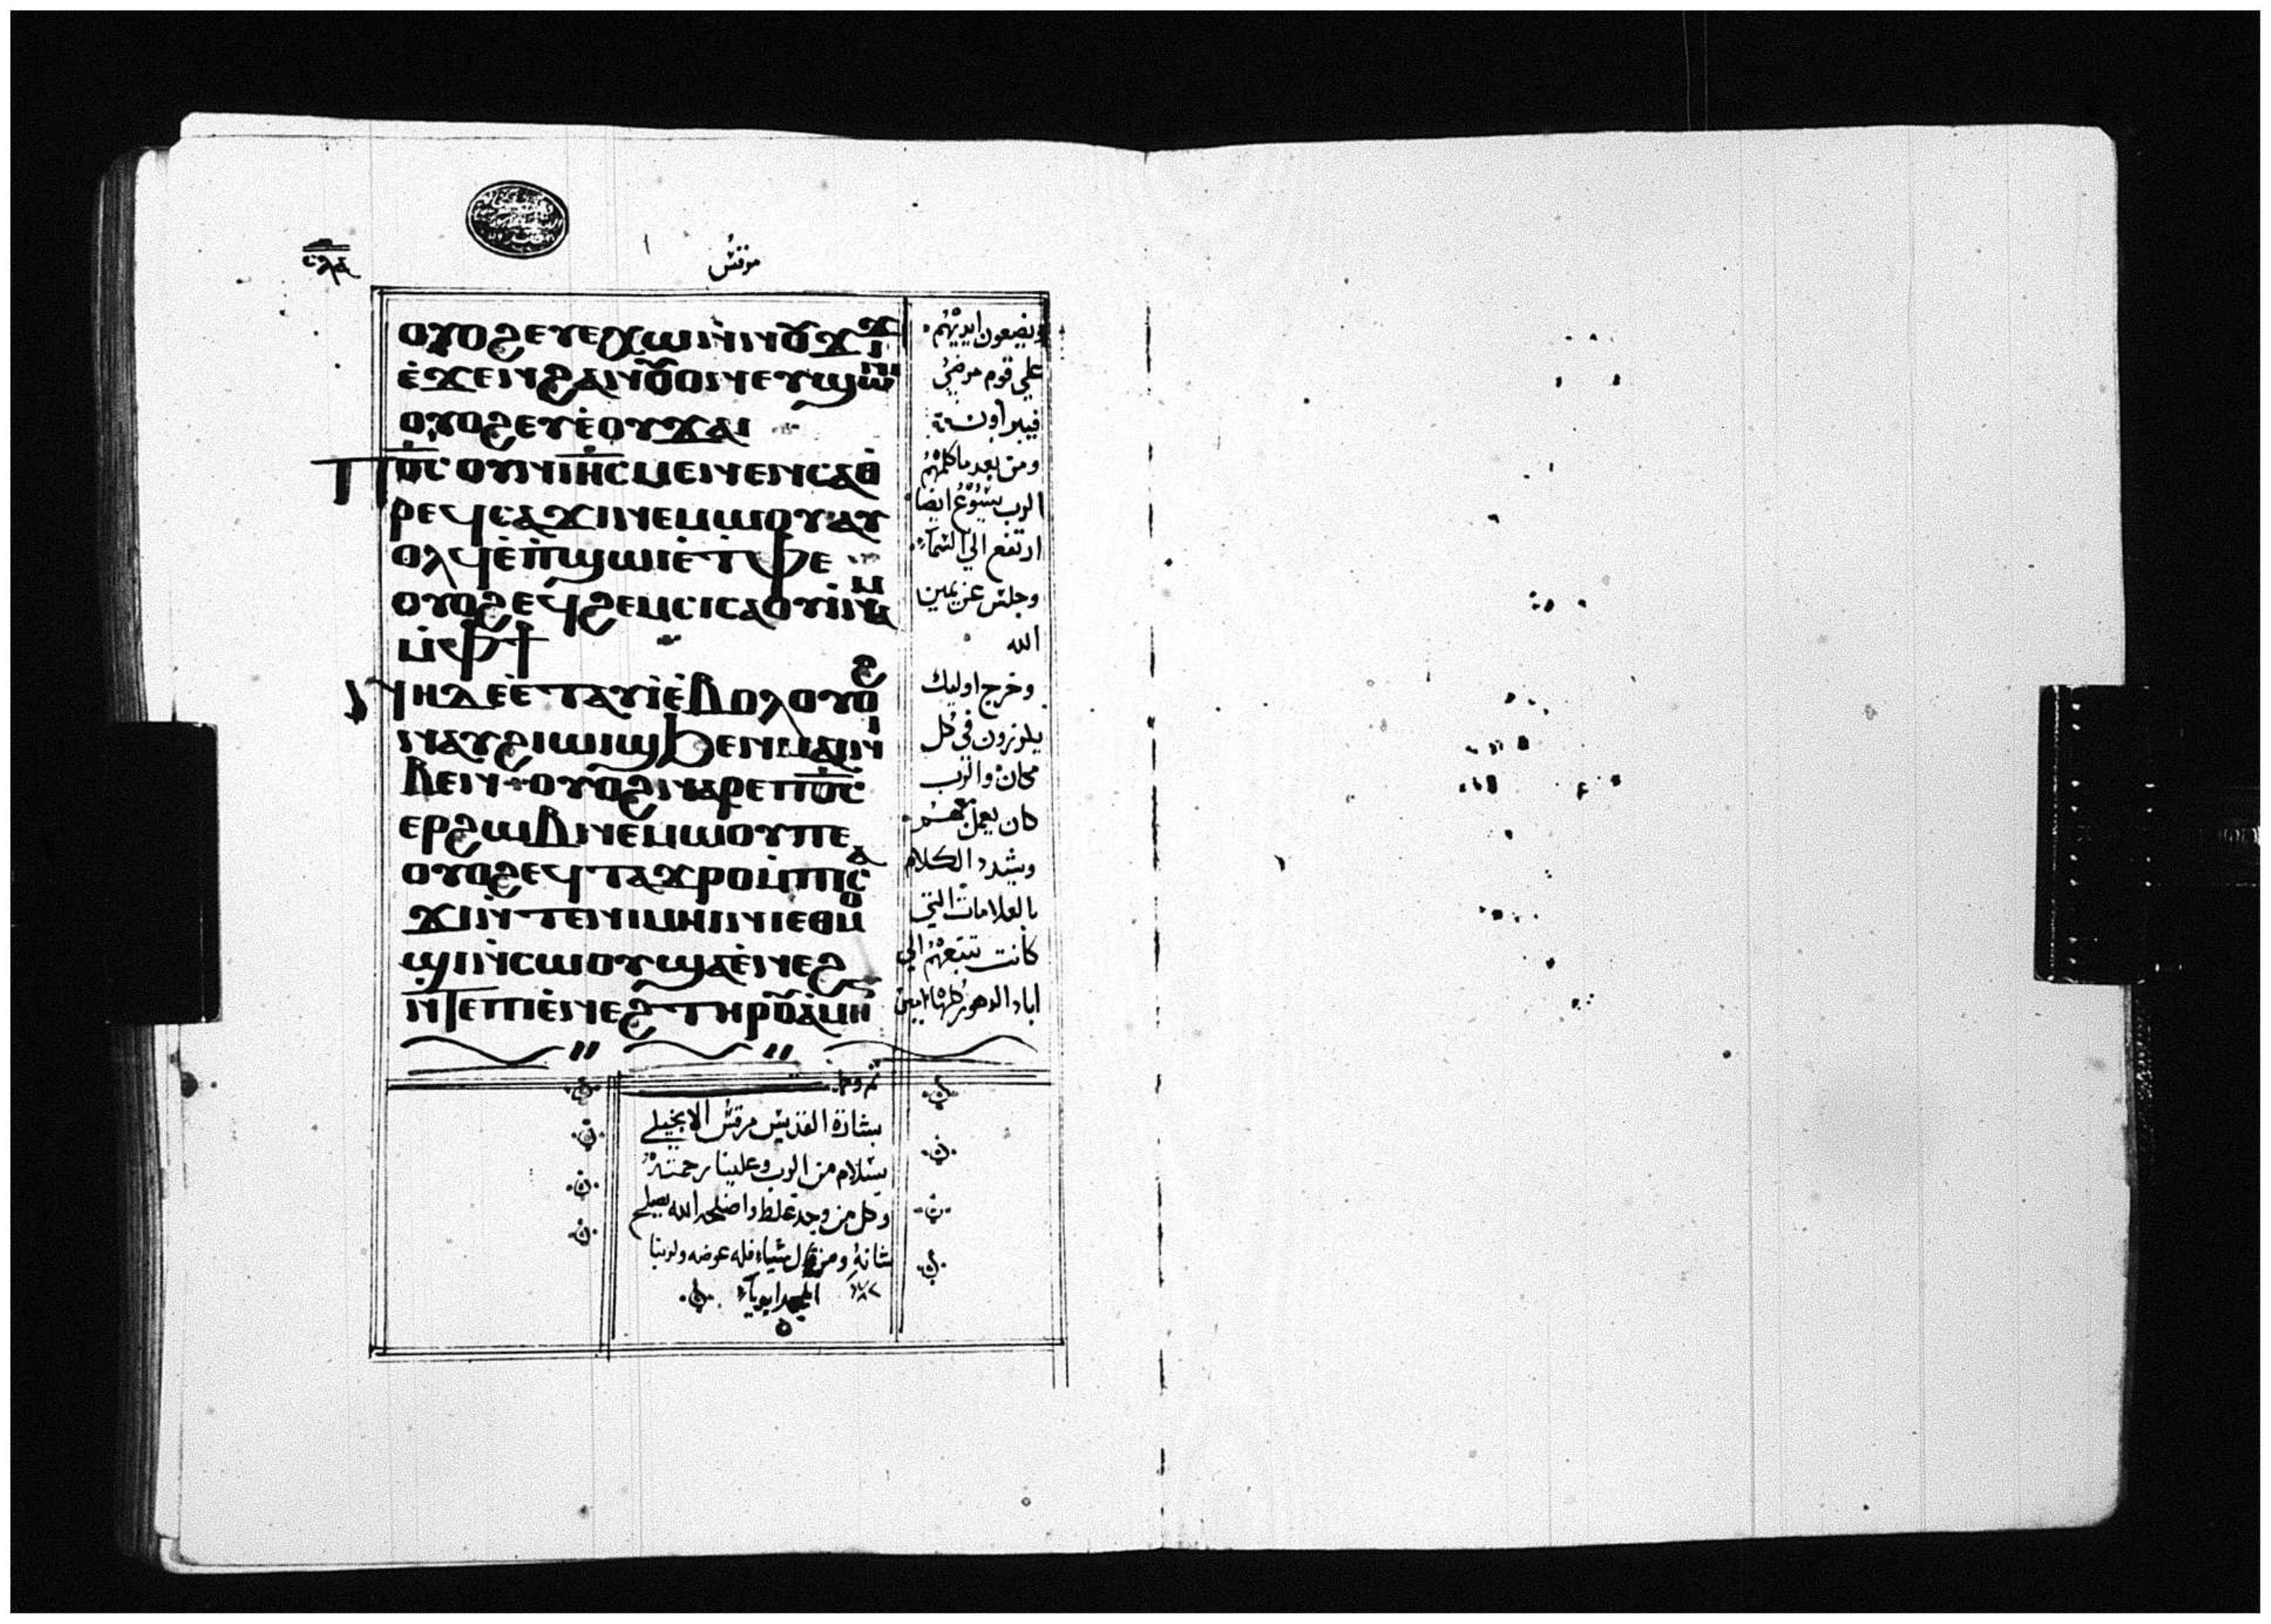 مرقس
ⲟⲩⲟϩ ⲉⲩⲉⲭⲱ ⲛ̇ⲛⲟⲩϫⲓϫ
ⲉ̇ϫⲉⲛ ϩⲁⲛⲟⲩⲟⲛ ⲉⲩϣⲱⲛⲓ
ⲟⲩⲟϩ ⲉⲩⲉ̇ⲟⲩϫⲁⲓ
Ⲡⲟ̅ⲥ̅ ⲟⲩⲛ ⲓⲏ̅ⲥ̅ ⲙⲉⲛⲉⲛⲥⲁⲑ
ⲣⲉϥⲥⲁϫⲓ ⲛⲉⲙⲱⲟⲩ ⲁⲩ
ⲟⲗϥ ⲉ̇ⲡ̇ϣⲱⲓ ⲉ̇ⲧⲫⲉ
ⲟⲩⲟϩ ⲉϥϩⲉⲙⲥⲓ ⲥⲁⲟⲩⲓ̇ⲛⲁⲙ
ⲙ̇ⲫϯ
ⲛⲏ ⲇⲉ ⲉ̇ⲧⲁⲩⲓ̇ ⲉ̇ⲃⲟⲗ ⲟⲩⲟϩ
ⲛⲁⲩϩⲓⲱⲓϣ ϧⲉⲛ ⲙⲁⲓ ⲛⲓ
ⲃⲉⲛ ⲟⲩⲟϩ ⲛⲁⲣⲉ ⲡⲟ̅ⲥ̅
ⲉⲣϩⲱⲃ ⲛⲉⲙⲱⲟⲩ ⲡⲉ
ⲟⲩⲟϩ ⲉϥⲧⲁϫⲣⲟ ⲙ̇ⲡⲓⲥⲁ
ϫⲓ ⲛ̇ⲧⲉⲛⲓⲙⲏⲓⲛⲓ ⲉⲑⲙⲟ
ϣⲓ ⲛ̇ⲥⲱⲟⲩ ϣⲁ ⲉ̇ⲛⲉϩ
ⲛ̅ⲧⲉ ⲡⲓⲉ̇ⲛⲉϩ ⲧⲏⲣⲟⲩ ⲁ̇ⲙⲏⲛ
ويضعون ايديهم
علي قوم مرضي
فيبراون
ومن بعد ما كلمهم
الرب يسوع ايضا
ارتفع الي السماء
وجلس عن يمين
الله
وخرج اوليك
يكرزون في كل
مكان والرب
كان يعمل معهم
ويشدد الكلام
بالعلامات التي
كانت تتبعهم الي
اباد الدهور كلها امين
بشارة القديس مرقس الانجيلي
بسلام من الرب وعلينا رحمته
وكل من وجد غلط واصلحه الله يصلح
شانه ومن قال شياء فله عوضه ولربنا
المجد ابديآ